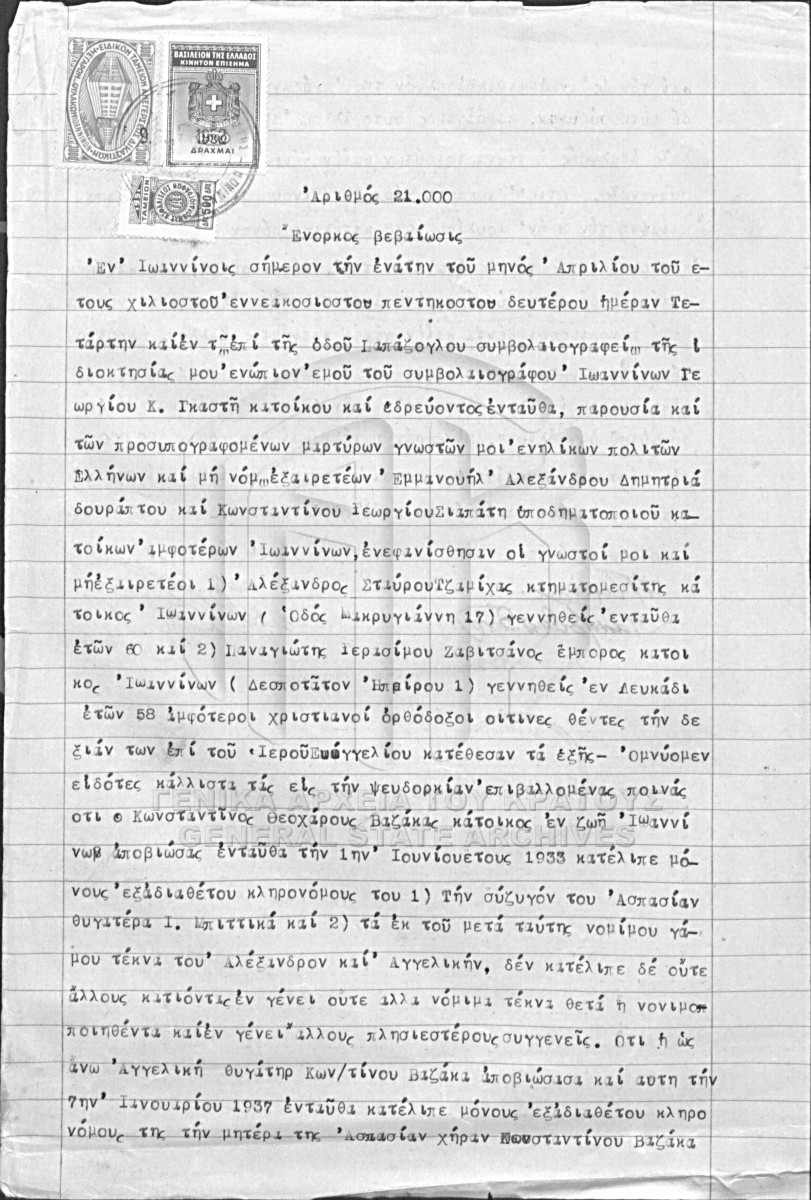 ΒΑΣΙΛΕΙΟΝ ΤΗΣ ΕΛΛΑΔΟΣ
ΚΙΝΗΤΟΝ ΕΠΙΣΗΜΑ
ΔΡΑΧΜΑΙ
ΤΑΜΕΙΟΝ
500
Ἀριθμός 21.000
Ἔνορκος βεβαίωσις
Ἐν Ἰωαννίνοις σήμερον τήν ἐνάτην τοῦ μηνός Ἀπριλίου τοῦ ε-
τους χιλιοστοῦ ἐννεακοσιοστου πεντηκοστου δευτέρου ἡμέραν Τε-
τάρτην καί ἐν τῷ ἐπί τῆς ὁδοῦ Παπάζογλου συμβολαιογραφείῳ τῆς ἰ
διοκτησίας μου ἐνώπιον ἐμοῦ τοῦ συμβολαιογράφου Ἰωαννίνων Γε
ωργίου Κ. Γκαστῆ κατοίκου καί ἑδρεύοντος ἐνταῦθα, παρουσία καί
τῶν προσυπογραφομένων μαρτύρων γνωστῶν μοι ἐνηλίκων πολιτῶν
Ἑλλήνων καί μή νόμῳ ἐξαιρετέων Ἐμμανουήλ Ἀλεξάνδρου Δημητριά
δου ράπτου καί Κωνσταντίνου Γεωργίου Σιαπάτη ὑποδηματοποιοῦ κα-
τοίκων ἀμφοτέρων Ἰωαννίνων, ἐνεφανίσθησαν οἱ γνωστοί μοι καί
μή ἐξαιρετέοι 1) Ἀλέξανδρος Σταύρου Τζαμίχας κτηματομεσίτης κά
τοικος Ἰωαννίνων ( Ὁδός Μακρυγιάννη 17) γεννηθείς ἐνταῦθα
ἐτῶν 60 καί 2) Παναγιώτης Γερασίμου Ζαβιτσάνος ἔμπορος κατοι
κος Ἰωαννίνων ( Δεσποτᾶτον Ἠπείρου 1) γεννηθείς ἐν Λευκάδι
ἐτῶν 58 ἀμφότεροι χριστιανοί ὀρθόδοξοι οιτινες θέντες τήν δε
ξιάν των ἐπί τοῦ Ἱεροῦ Εὐαγγελίου κατέθεσαν τά ἑξῆς- Ὀμνύομεν
εἰδότες κάλλιστα τάς εἰς τήν ψευδορκίαν ἐπιβαλλομένας ποινάς
οτι ο Κωνσταντῖνος Θεοχάρους Βαζάκας κάτοικος ἐν ζωῇ Ἰωαννί
νων ἀποβιώσας ἐνταῦθα τήν 1ην Ἰουνίου ετους 1933 κατέλιπε μό-
νους ἐξ ἀδιαθέτου κληρονόμους του 1) Τήν σύζυγόν του Ἀσπασίαν
θυγατέρα Ι. Μπιττικά καί 2) τά ἐκ τοῦ μετά ταύτης νομίμου γά-
μου τέκνα του Ἀλέξανδρον καί Ἀγγελικήν, δέν κατέλιπε δέ οὔτε
ἄλλους κατιόντας ἐν γένει οὔτε αλλα νόμιμα τέκνα θετά ἤ νονιμο-
ποιηθέντα καί ἐν γένει ἄλλους πλησιεστέρους συγγενεῖς. Οτι ἡ ὡς
ἄνω Ἀγγελική θυγάτηρ Κων/τίνου Βαζάκα ἀποβιώσασα καί αυτη τήν
7ην Ἰανουαρίου 1937 ἐνταῦθα κατέλιπε μόνους ἐξ ἀδιαθέτου κληρο
νόμους της τήν μητέρα της Ἀσπασίαν χήραν Κωνσταντίνου Βαζάκα
ΓΕΝΙΚΑ ΑΡΧΕΙΑ ΤΟΥ ΚΡΑΤΟΥΣ
GENERAL STATE ARCHIVES